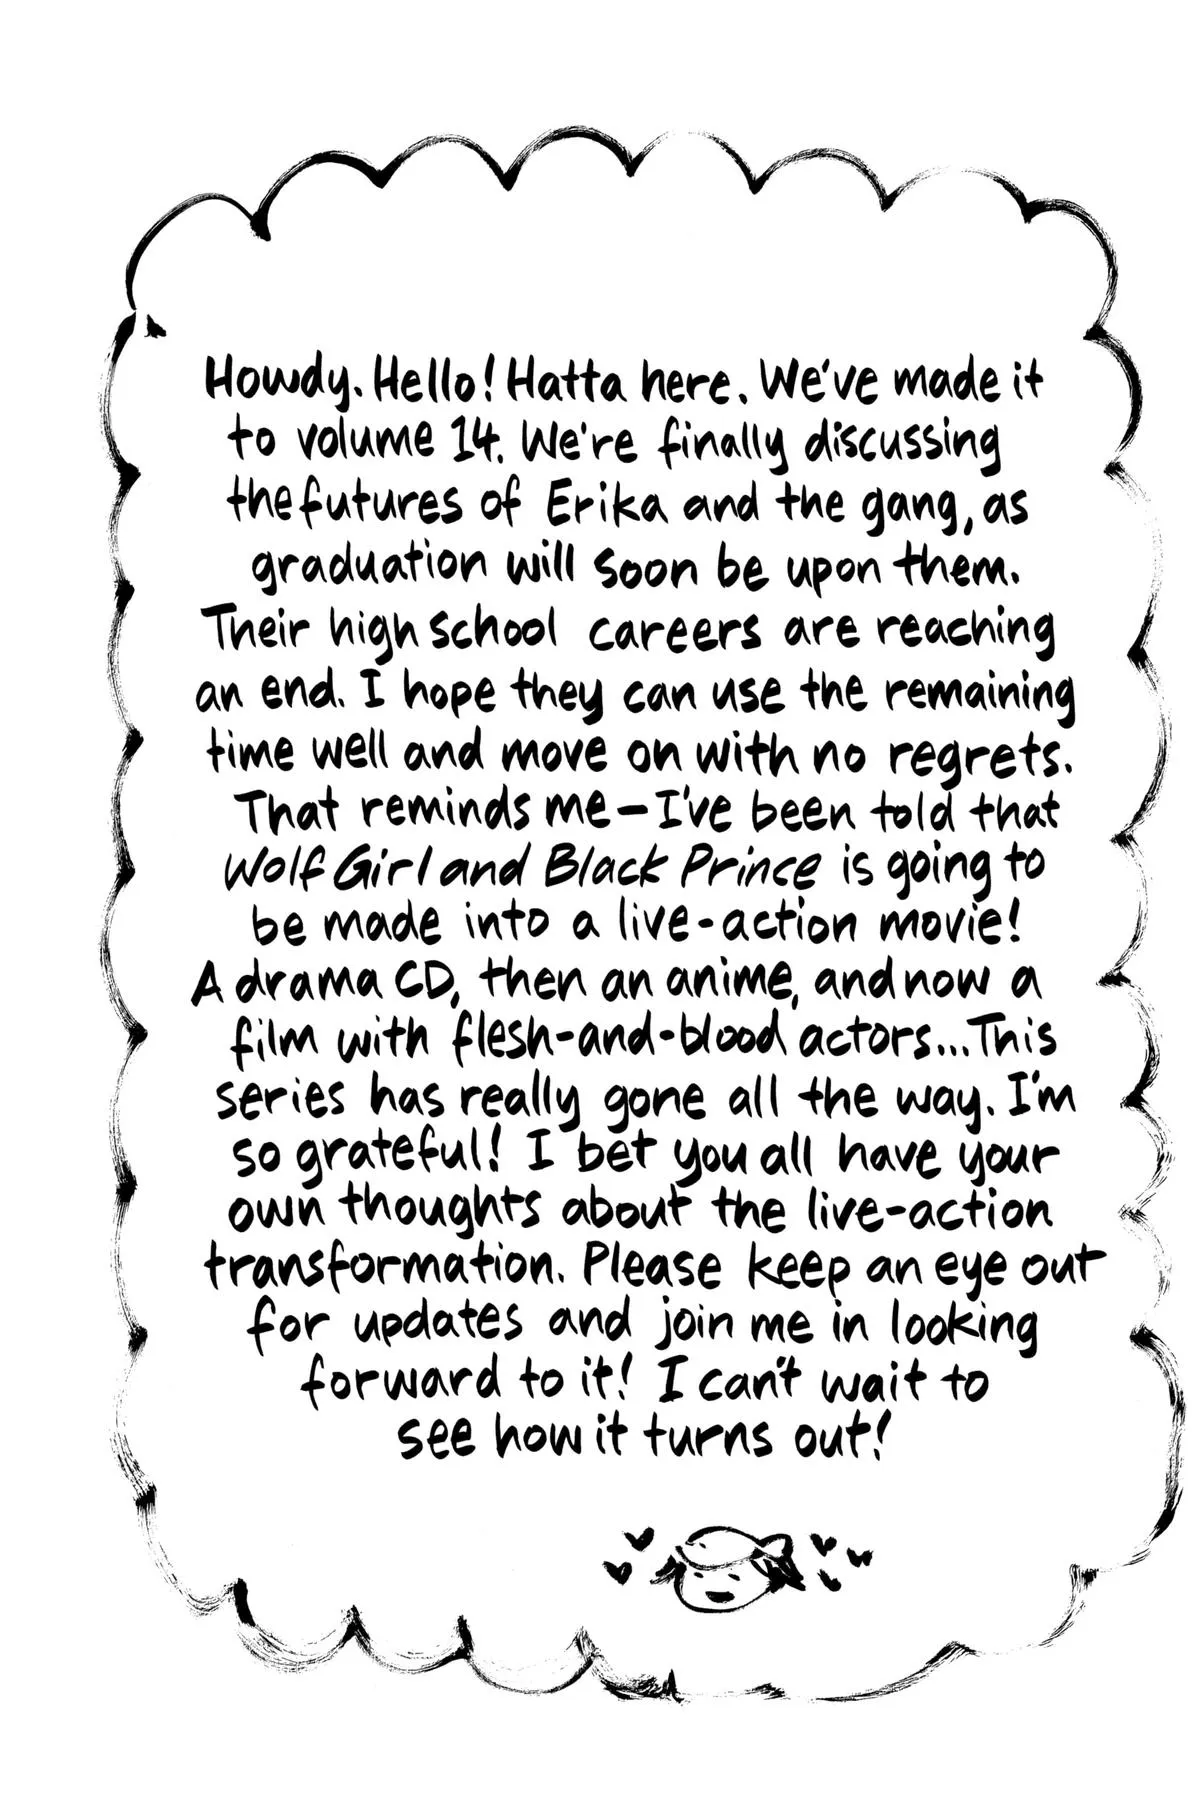 Howdy. Hello! Hatta here. We've made it
to volume 14. We're finally discussing
the futures of Erika and the gang, as
graduation will soon be upon them.
Their high school careers are reaching
an end. I hope they can use the remaining
time well and move on with no regrets.
That reminds me—I've been told that
Wolf Girl and Black Prince is going to
be made into a live-action movie!
A drama CD, then an anime, and now a
film with flesh-and-blood actors...This
series has really gone all the way. I'm
so grateful! I bet you all have your
own thoughts about the live-action
transformation. Please keep an eye out
for updates and join me in looking
forward to it! I can't wait to
see how it turns out!